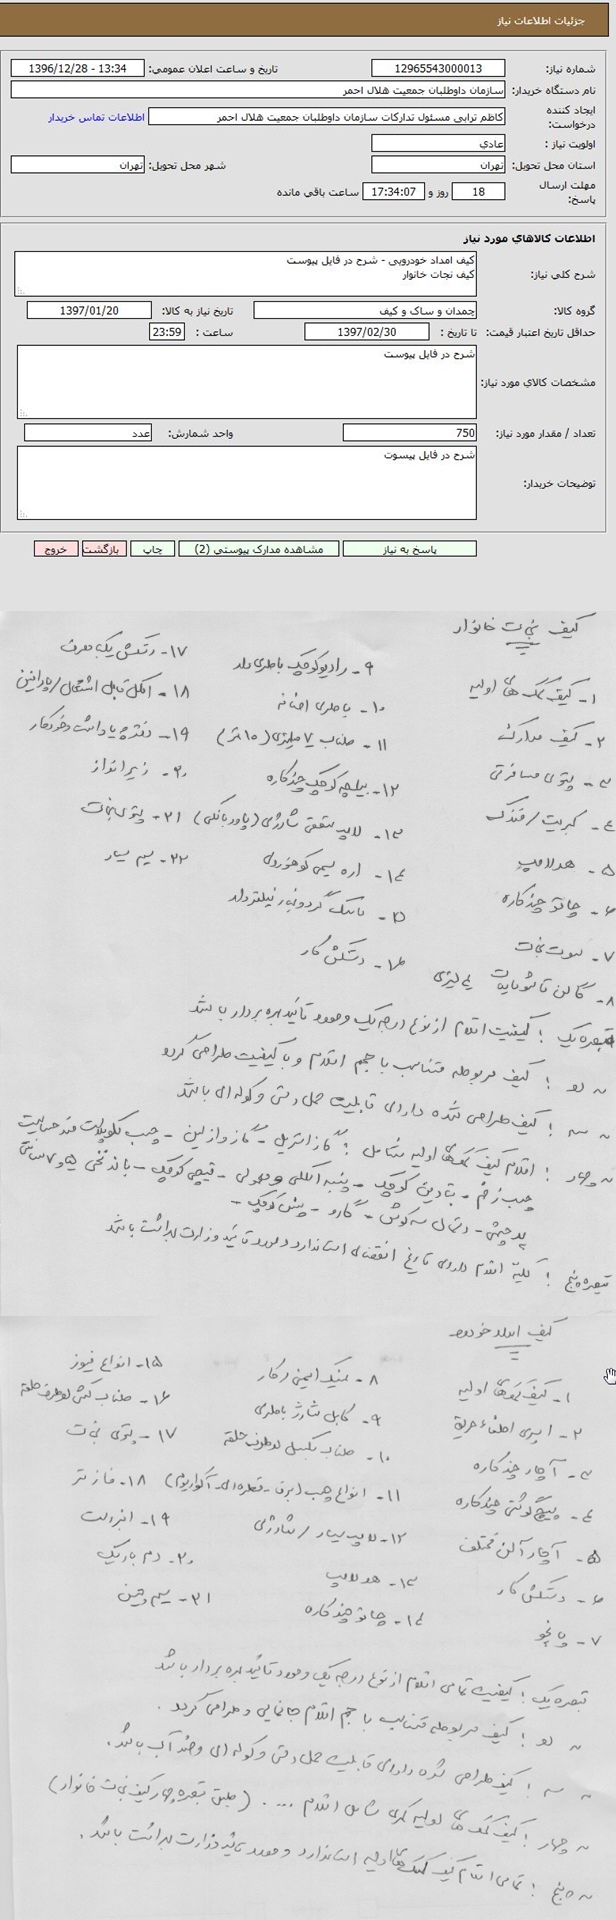 جزئیات اطلاعات نیاز
شماره نیاز: 12965543000013 تاریخ و ساعت اعلان عمومي: 1396/12/28 - 13:34
نام دستگاه خریدار: سازمان داوطلبان جمعیت هلال احمر
ایجاد کننده درخواست: کاظم ترابی مسئول تدارکات سازمان داوطلبان جمعیت هلال احمر اطلاعات تماس خریدار
اولویت نیاز : عادي
استان محل تحویل: تهران شهر محل تحویل: تهران
مهلت ارسال پاسخ: 18 روز و 17:34:07 ساعت باقي مانده
اطلاعات کالاهاي مورد نیاز
شرح کلي نیاز: کیف امداد خودرویی - شرح در فایل پیوست
کیف نجات خانوار
گروه کالا: چمدان و ساک و کیف تاریخ نیاز به کالا: 1397/01/20
حداقل تاریخ اعتبار قیمت: تا تاریخ : 1397/02/30 ساعت : 23:59
مشخصات کالاي مورد نیاز: شرح در فایل پیوست
تعداد / مقدار مورد نیاز: 750 واحد شمارش: عدد
توضیحات خریدار: شرح در فایل پیسوت
پاسخ به نیاز مشاهده مدارک پیوستي (2) چاپ بازگشت خروج
کیف نجات خانوار
۱- کیف کمک های اولیه
۲- کیف مدارک
۳- پتوی مسافرتی
۴- کبریت / فندک
۵- هدلامپ
۶- چاقو چندکاره
۷- سوت نجات
۸- گالن تاشو
۹- رادیو کوچک باطری دار
۱۰- باطری اضافه
۱۱- طناب ۷ میلیمتری (۱۵ متر)
۱۲- بیلچه کوچک چندکاره
۱۳- لامپ سقفی شارژی (پاور بانکی)
۱۴- اره سیمی کوهنوردی
۱۵- ماسک گرد و غبار فیلتر دار
۱۶- دستکش کار
۱۷- دستکش یکبار مصرف
۱۸- الکل قابل اشتعال / پارافین
۱۹- دفترچه یادداشت و خودکار
۲۰- زیرانداز
۲۱- پتوی نجات
۲۲- سیم سیار
تبصره یک : کیفیت اقلام از نوع درجه یک و مورد تائید بهره بردار باشد
〃 دو : کیف مربوطه متناسب با حجم اقلام و با کیفیت طراحی گردد
〃 سه : کیف طراحی شده دارای قابلیت حمل دستی و کوله ای باشد
〃 چهار : اقلام کیف کمکهای اولیه شامل : گاز استریل - گاز وازلین - چسب ضد حساسیت
چسب زخم - بتادین کوچک - پنبه الکلی و معمولی - قیچی کوچک - باند
پد چشمی - دستمال سه گوش - گارو - پنس کوچک -
تبصره پنج : کلیه اقلام دارای تاریخ انقضای استاندارد و مورد تائید وزارت بهداشت باشد
کیف امداد خودرو
۱- کیف کمکهای اولیه
۲- اسپری اطفاء حریق
۳- آچار چندکاره
۴- پیچ گوشتی چندکاره
۵- آچار آلن مختلف
۶- دستکش کار
۷- پانچو
۸- عینک ایمنی کار
۹- کابل شارژ باطری
۱۰- طناب بکسل دو طرف حلقه
۱۱- انواع چسب (برق - قطره ای - آکواریوم)
۱۲- لامپ سیار / شارژی
۱۳- هدلامپ
۱۴- چاقو چندکاره
۱۵- انواع فیوز
۱۶- طناب کشی دو طرف حلقه
۱۷- پتوی نجات
۱۸- فازمتر
۱۹- انبردست
۲۰- دم باریک
۲۱- سیم چین
تبصره یک : کیفیت تمامی اقلام از نوع درجه یک و مورد تائید بهره بردار باشد
〃 دو : کیف مربوطه متناسب با حجم اقلام جانمایی و طراحی گردد .
〃 سه : کیف طراحی شده دارای قابلیت حمل دستی و کوله ای و ضد آب باشد .
〃 چهار : کیف کمک های اولیه شامل اقلام .... (طبق تبصره چهار کیف نجات خانوار)
〃 پنج : تمامی اقلام کیف کمک های اولیه استاندارد و مورد تائید وزارت بهداشت باشد .